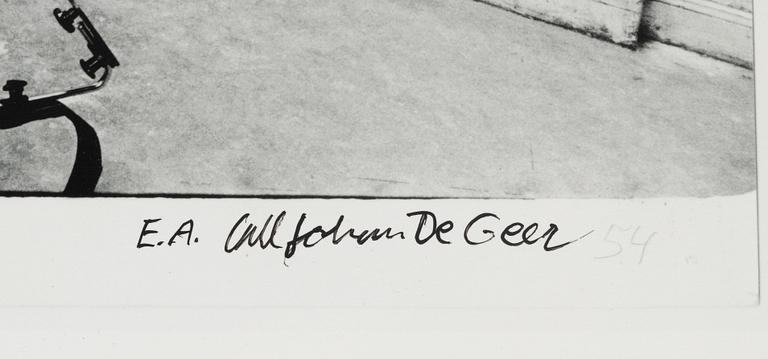 E.A. Carl Johan De Geer 54